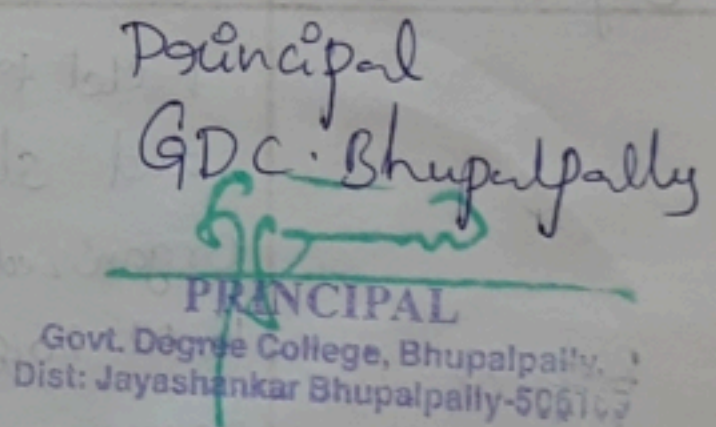 Principal
GDC. Bhupalpally
PRINCIPAL
Govt. Degree College, Bhupalpally.
Dist: Jayashankar Bhupalpally-506169